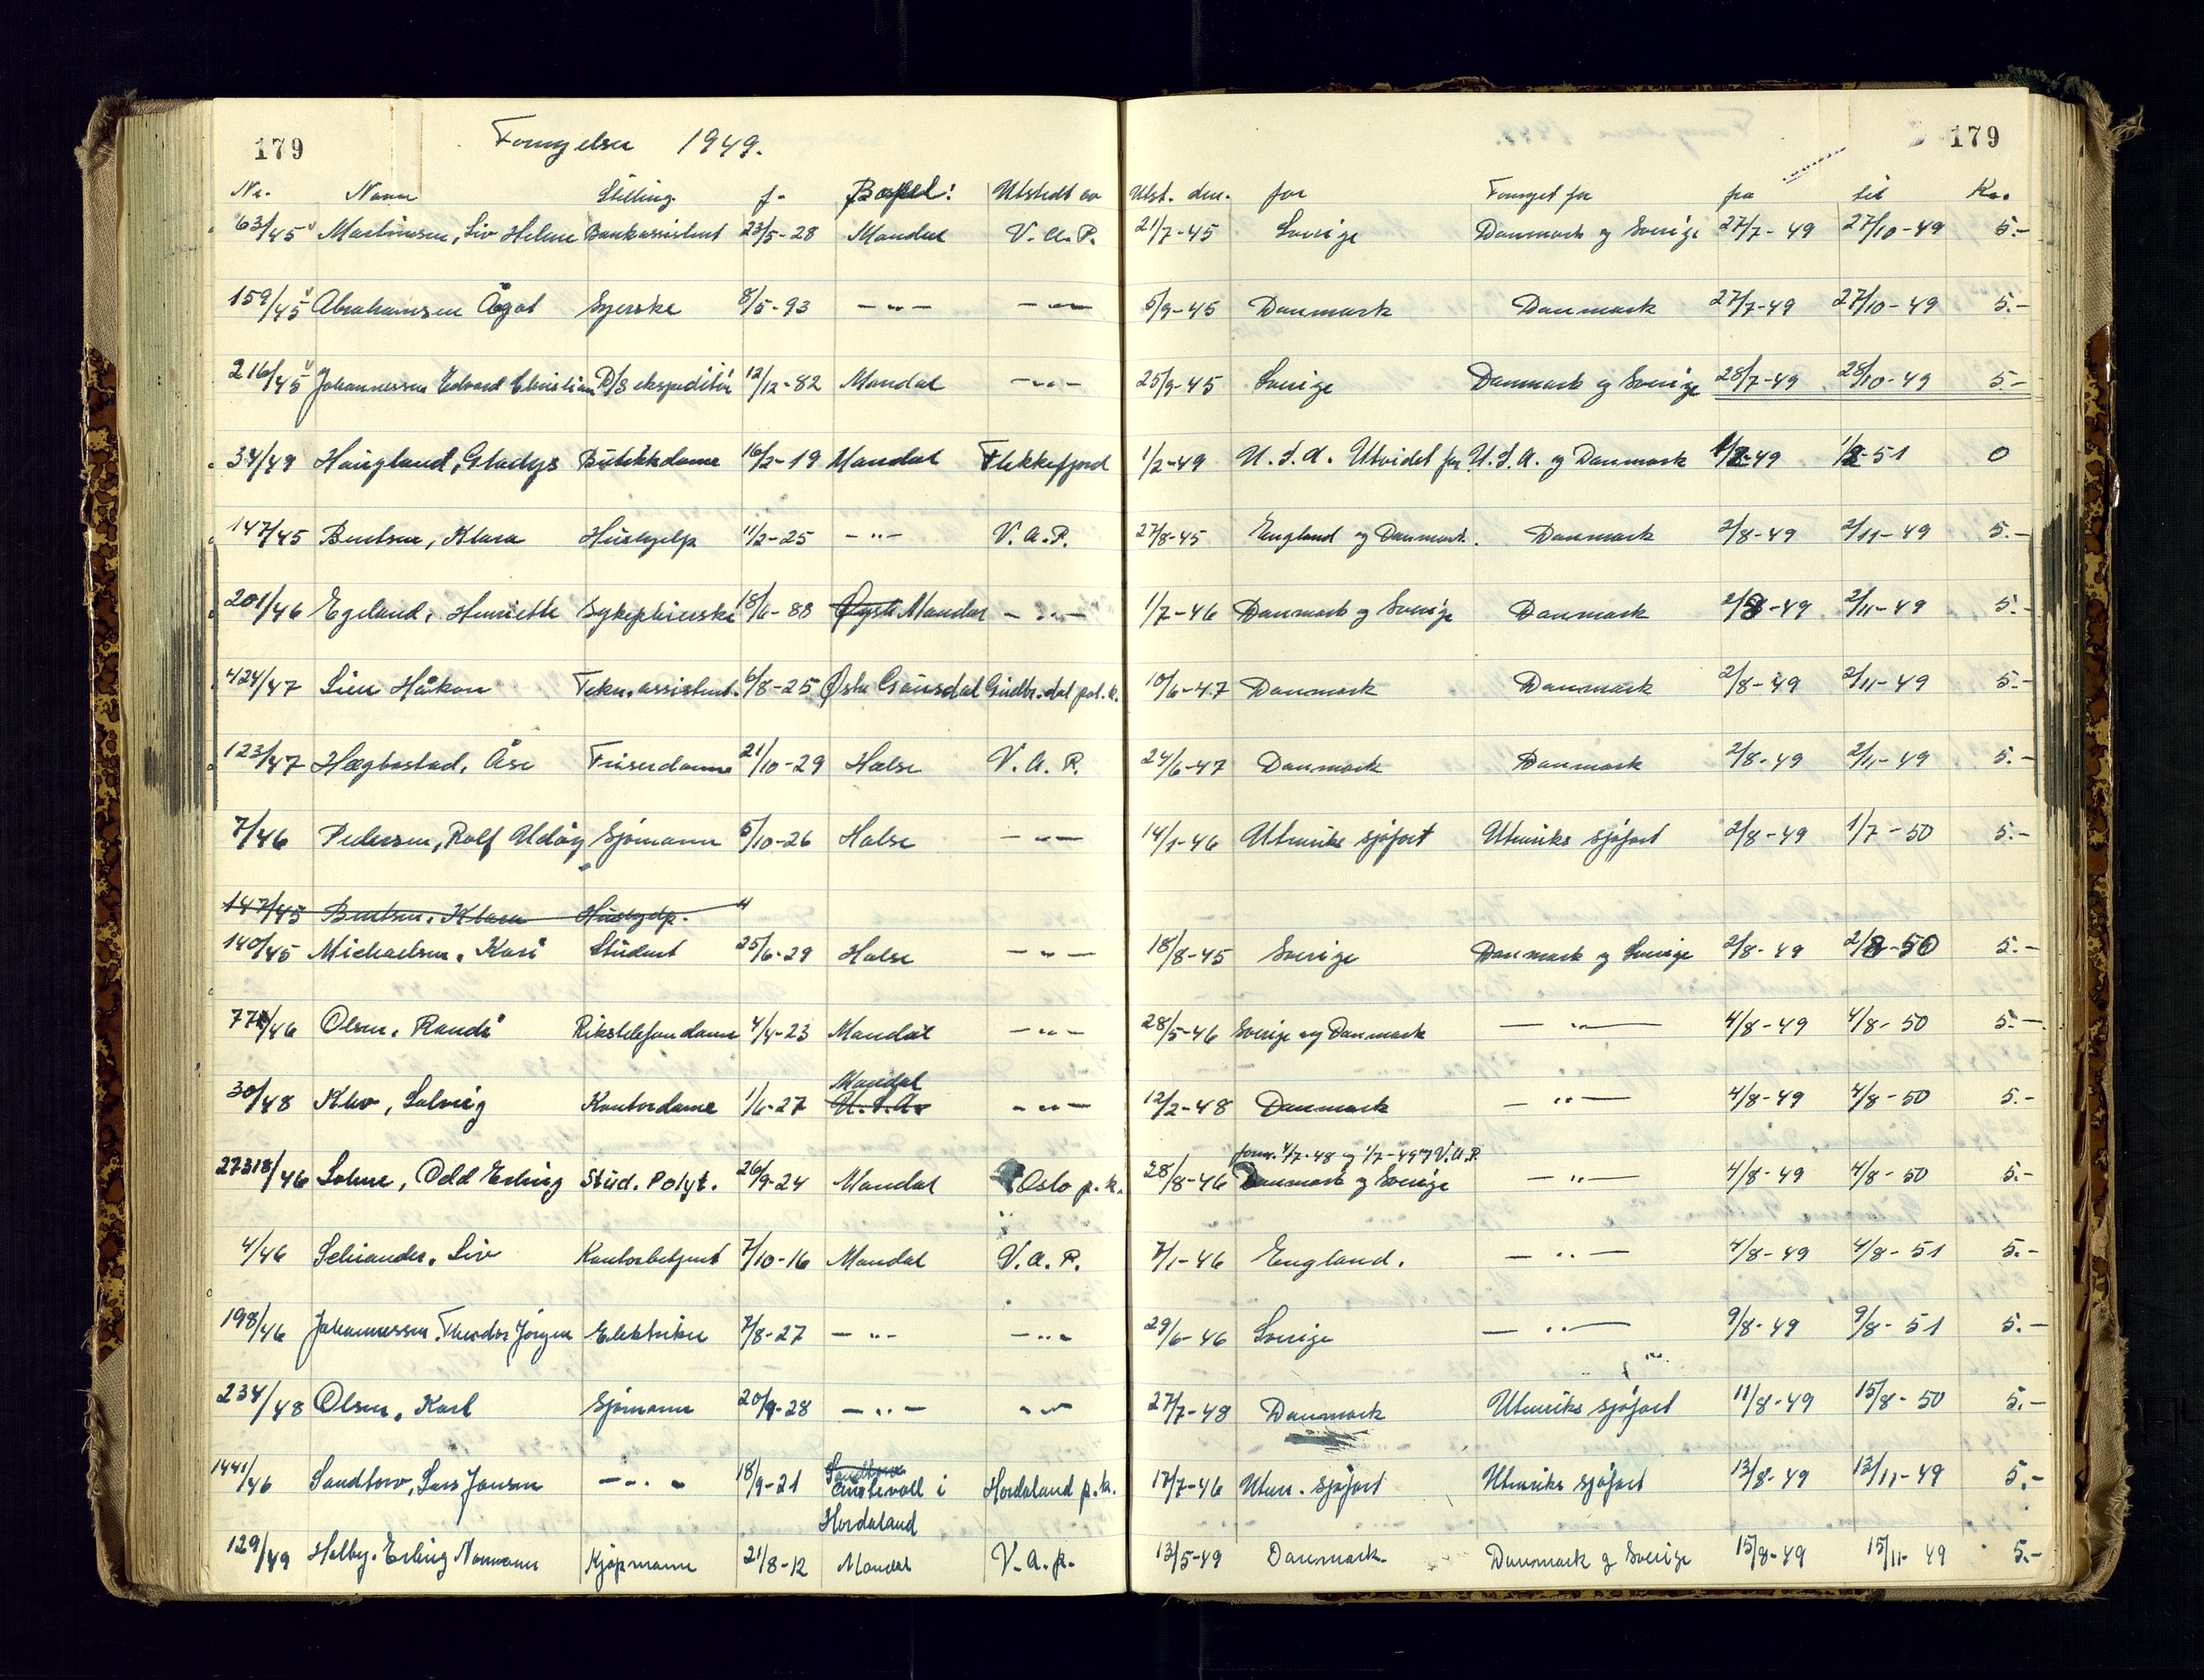 179 Fornyelser 1949. 179
Nr. Navn Stilling f. Bopel: Utstedt av Utst. den. for Fornyet for fra til Kr.
63/45 Martinsen, Liv Helene Bankassistent 23/5-28 Mandal V.A.P. 21/7-45 Sverige Danmark og Sverige 27/7-49 27/10-49 5.-
159/45 Abrahamsen Ågot Syerske 8/5-93 -"- -"- 5/9-45 Danmark Danmark 27/7-49 27/10-49 5.-
216/45 Johannessen Edvard Christian D/S ekspeditør 12/12-82 Mandal -"- 25/9-45 Sverige Danmark og Sverige 28/7-49 28/10-49 5-
34/49 Haugland, Gladys Butikkdame 16/2-19 Mandal Flekkefjord 1/2-49 U.S.A. Utvidet for U.S.A. og Danmark 1/2-49 1/2-51 0
147/45 Bentsen, Klara Hushjelp 11/2-25 -"- V.A.P. 27/8-45 England og Danmark. Danmark 2/8-49 2/11-49 5.-
201/46 Egeland, Henriette Sykepleierske 18/6-88 Øyst. Mandal -"- 1/7-46 Danmark og Sverige Danmark 2/8-49 2/11-49 5.-
424/47 Lien Håkon Tekn. assistent. 6/8-25 Østre Gausdal Gudbr.dal pol.k. 10/6-47 Danmark Danmark 2/8-49 2/11-49 5.-
123/47 Hægbostad, Åse Friserdame 21/10-29 Halse V.A.P. 24/6-47 Danmark Danmark 2/8-49 2/11-49 5.-
7/46 Pedersen, Rolf Uldøy Sjømann 5/10-26 Halse -"- 14/1-46 Utenriks sjøfart Utenriks sjøfart 2/8-49 1/7-50 5.-
147/45 Bentsen, Klara Hushjelp. 11
140/45 Michaelsen, Kari Student 25/6-29 Halse -"- 18/8-45 Sverige Danmark og Sverige 2/8-49 2/8-50 5.-
77/46 Olsen, Randi Rikstelefondame 4/4-23 Mandal -"- 28/5-46 Sverige og Danmark -"- 4/8-49 4/8-50 5.-
Mandal
30/48 Klev, Solveig Kontordame 1/6-27 U.S.A. -"- 12/2-48 Danmark -"- 4/8-49 4/8-50 5.-
forn. 1/7-48 og 1/7-49 V.A.P.
27318/46 Solme, Odd Erling Stud. Polyt. 26/9-24 Mandal Oslo p.k. 28/8-46 Danmark og Sverige -"- 4/8-49 4/8-50 5.-
4/46 Seliander, Liv Kontorbetjent 7/10-16 Mandal V.A.P. 7/1-46 England. -"- 4/8-49 4/8-51 5.-
198/46 Johannessen, Theodor Jørgen Elektriker 7/8-27 -"- -"- 29/6-46 Sverige -"- 9/8-49 9/8-51 5.-
234/48 Olsen, Karl Sjømann 20/9-28 -"- -"- 27/7-48 Danmark Utenriks sjøfart 11/8-49 15/8-50 5.-
Sandtorv
1441/46 Sandtorv, Lars Jansen -"- 18/9-21 Austevoll i Hordaland p.k. 17/7-46 Uten. sjøfart Utenriks sjøfart 13/8-49 13/11-49 5.-
Hordaland
129/49 Holby, Erling Normann Kjøpmann 21/8-12 Mandal V.A.p. 13/5-49 Danmark. Danmark og Sverige 15/8-49 15/11-49 5.-